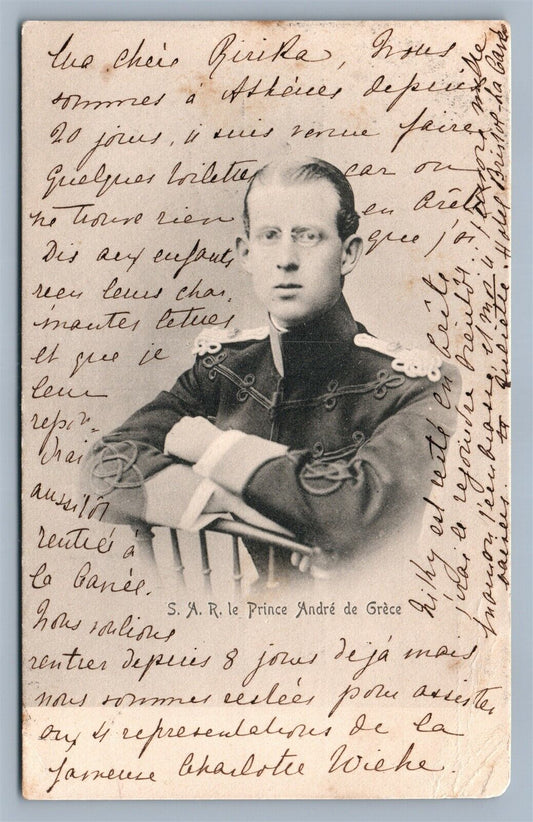 Ma chère Ririka, Nous
sommes à Athènes depuis
20 jours, je suis venue faire
quelques toilettes car on
ne trouve rien en Crête
Dis aux enfants que j'ai
reçu leurs char-
mantes lettres
et que je
leur
répon-
drai
aussitôt
rentrée à
la Canée.
S. A. R. le Prince André de Grèce
Nous voulions
rentrer depuis 8 jours déjà mais
nous sommes restées pour assister
aux 4 représentations de la
fameuse Charlotte Wiehe.
Nikky est resté en Crête
j'vais le rejoindre bientôt.
maman t'embrasse et moi
baisers. ta Juliette. Hotel Bristol-La Canée